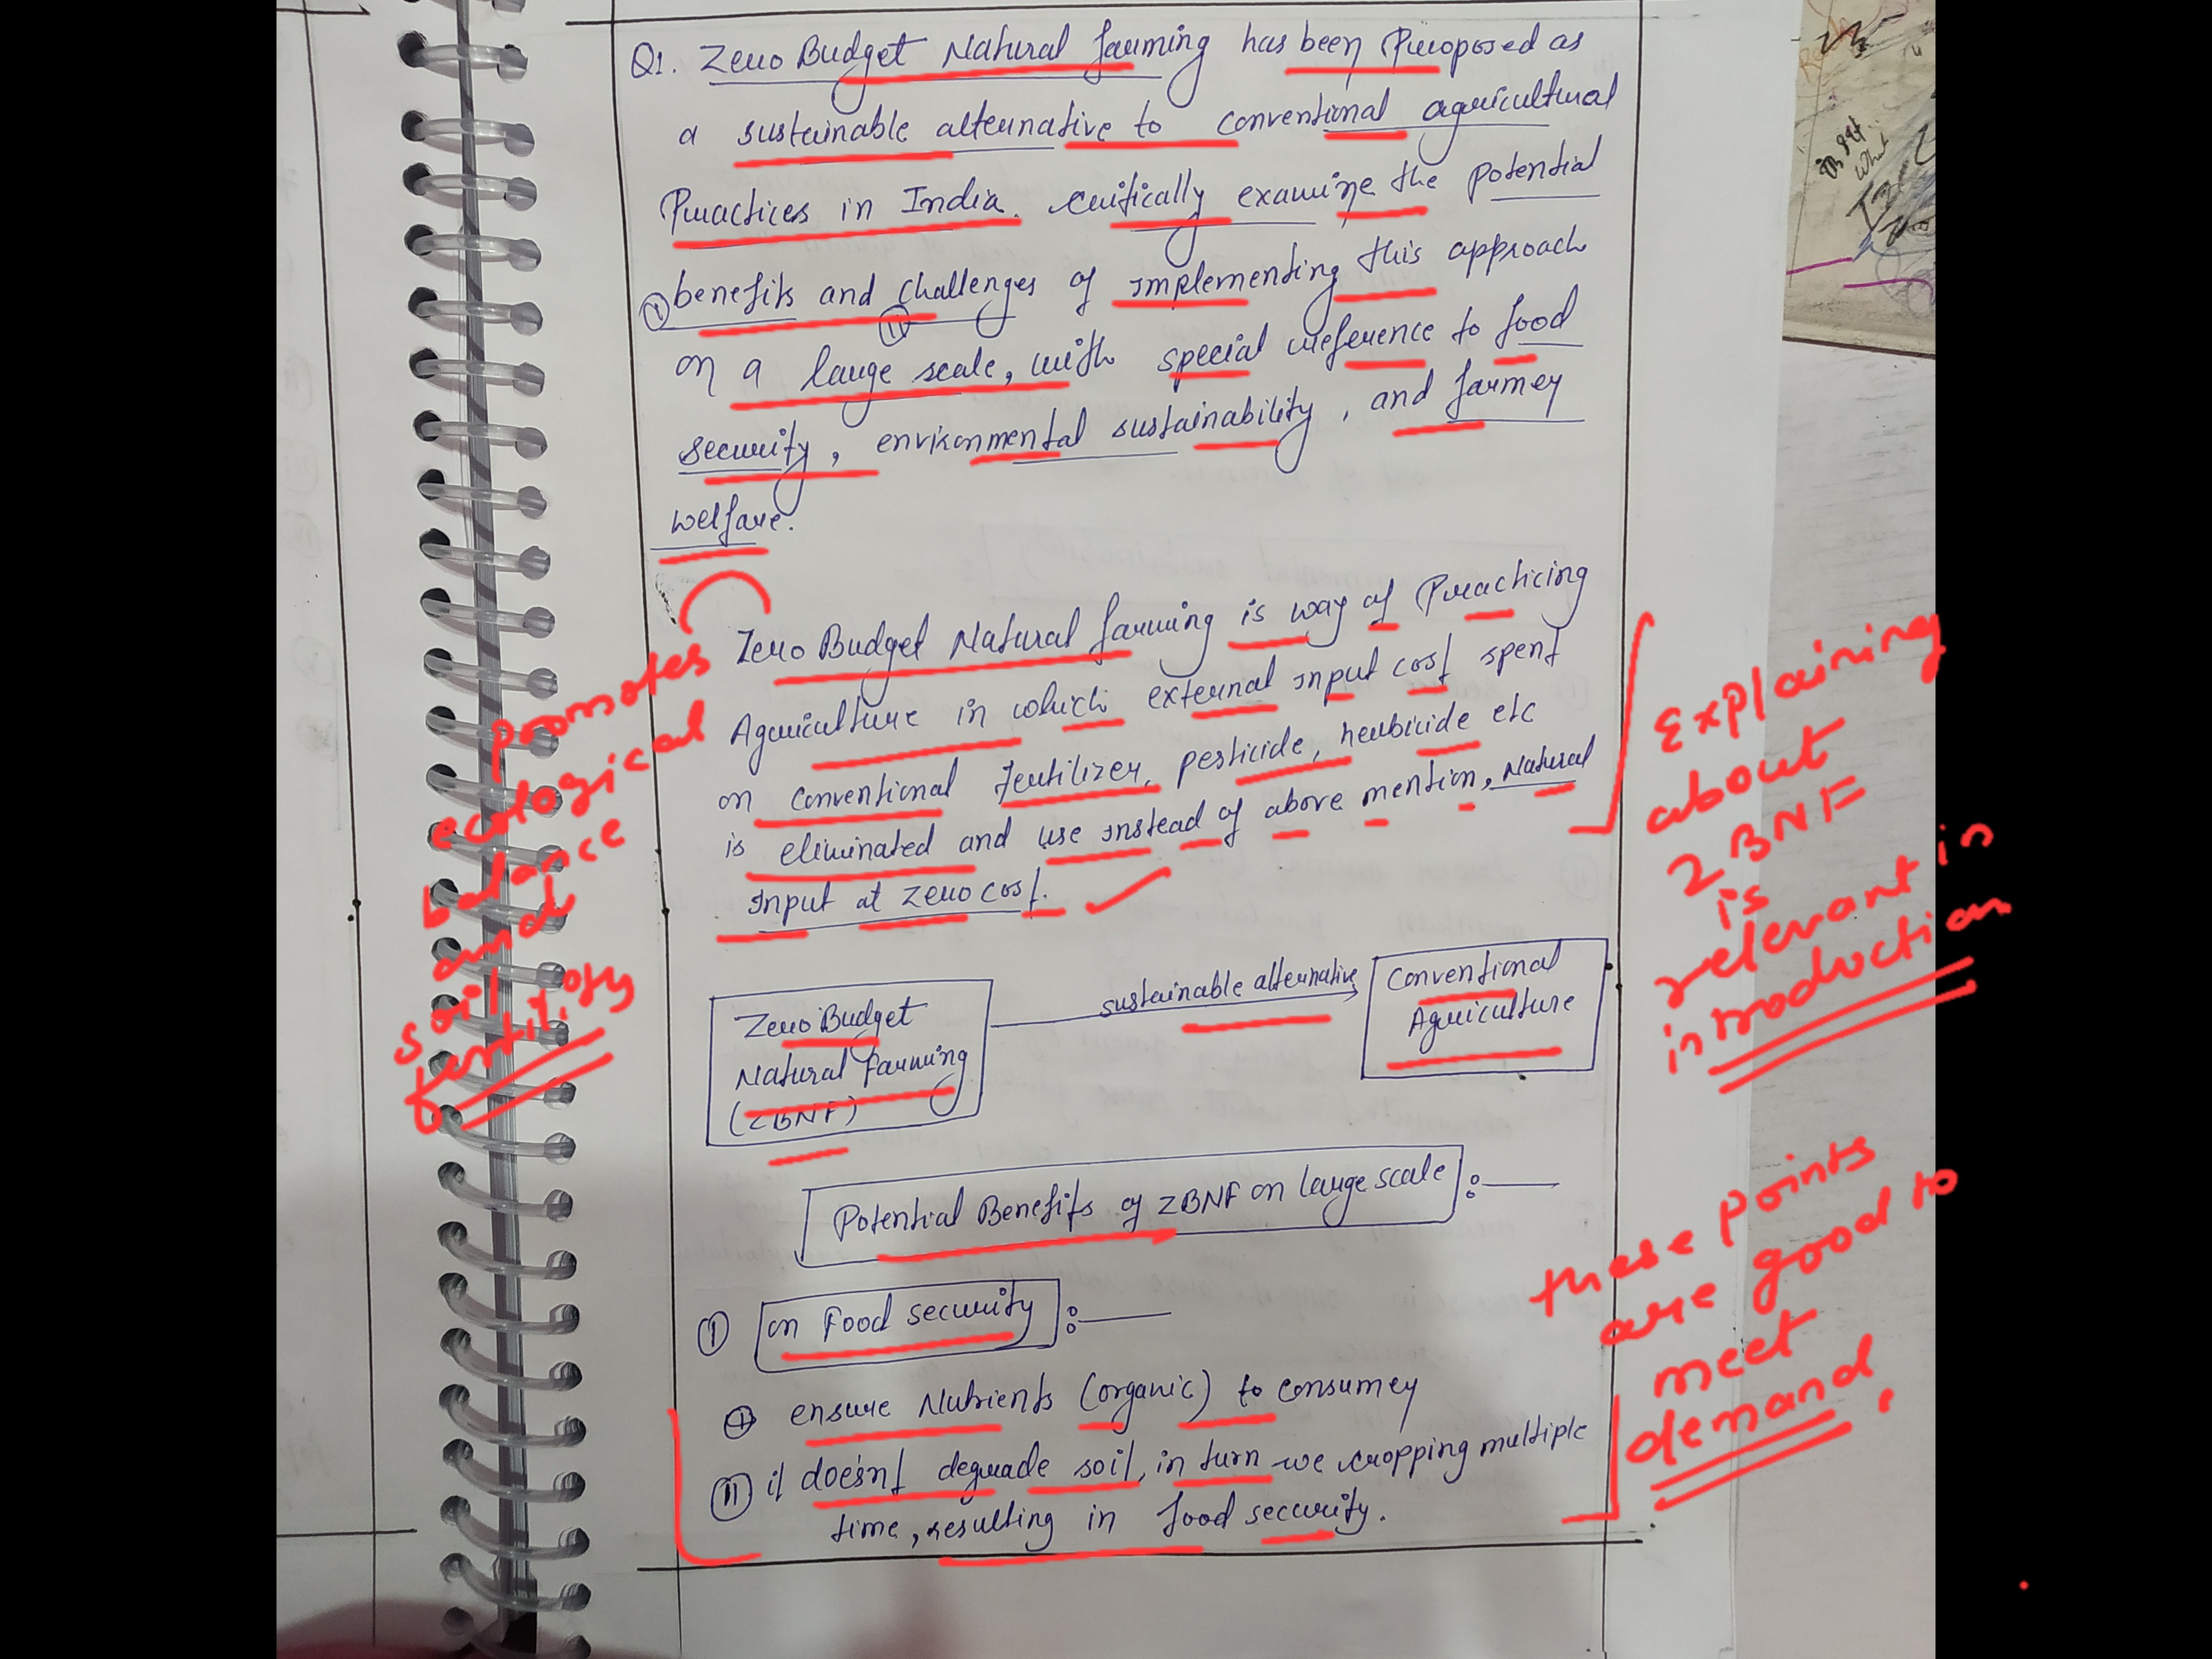 Q1. Zero Budget Natural farming has been Proposed as
a sustainable alternative to conventional agricultural
Practices in India. critically examine the potential
benefits and challenges of implementing this approach
on a large scale, with special reference to food
security, environmental sustainability, and farmer
welfare.
I
II
Zero Budget Natural farming is way of Practicing
Agriculture in which external input cost spent
on conventional fertilizer, pesticide, herbicide etc
is eliminated and use instead of above mention, Natural
input at zero cost.
promotes
ecological
balance
and
soil
fertility
Explaining
about
ZBNF
is
relevant in
introduction
Zero Budget
Natural farming
(ZBNF)
sustainable alternative
Conventional
Agriculture
Potential Benefits of ZBNF on large scale :—
I on Food security :—
I ensure Nutrients (organic) to consumer
II it doesn't degrade soil, in turn we cropping multiple
time, resulting in food security.
these points
are good to
meet
demand.